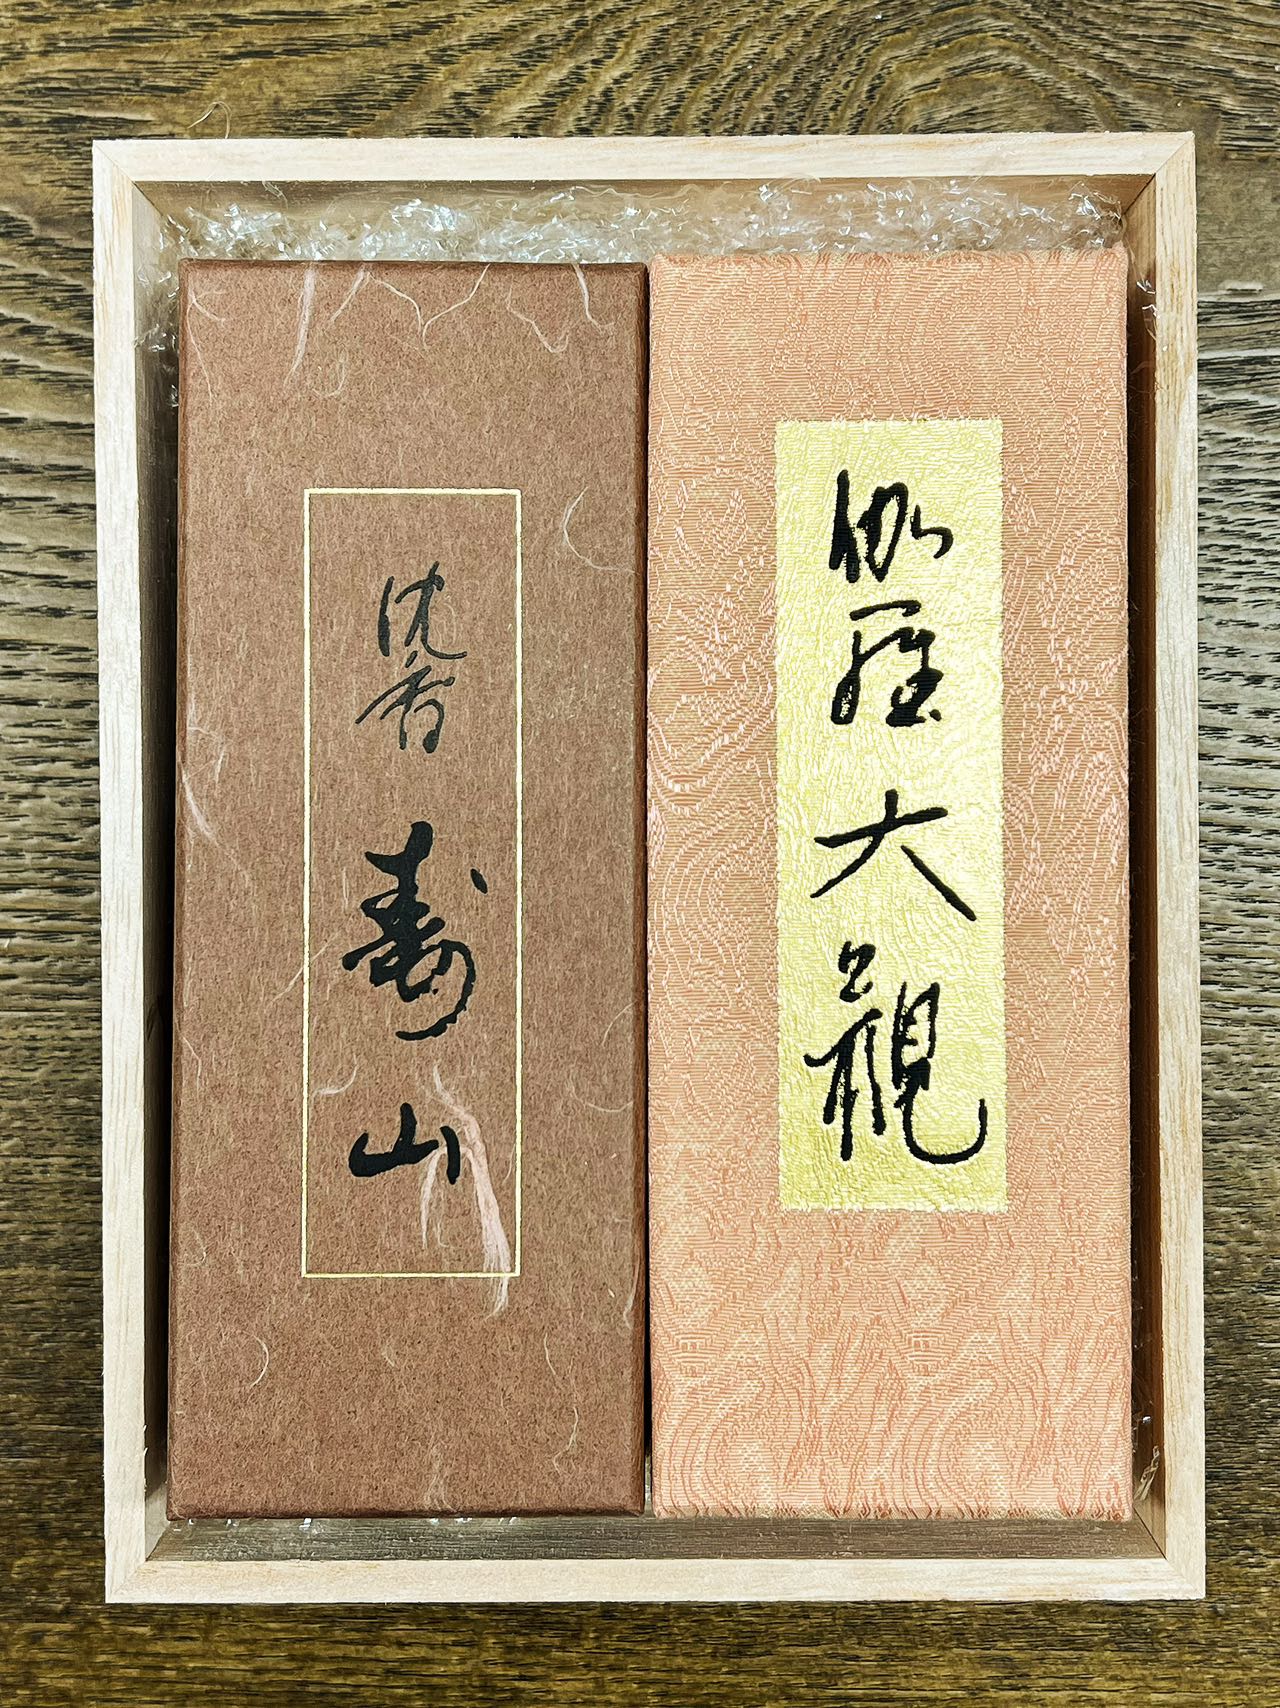 伽羅大観
沈香
寿山